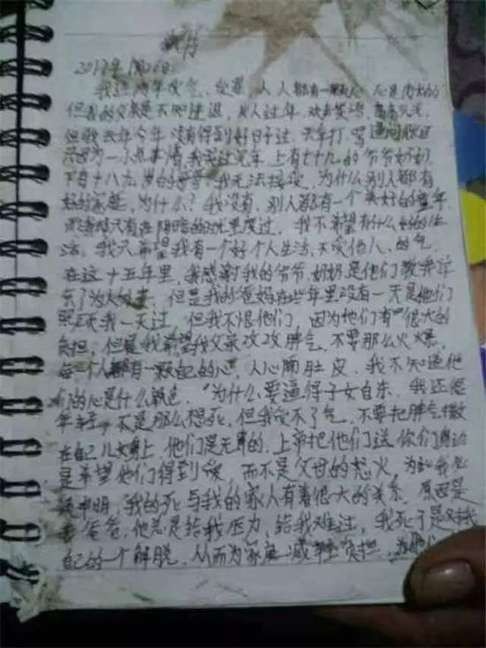 2017年1月26日
我这两年受气,受罪,人人都有一颗心,心是肉长的
但我的父亲是不知进退,别人过年,欢声笑语,
但我去年今年没有得到好日子过,天天打,骂
只因为一点点事情,我家过完年,上有七十九的爷爷奶奶
下有十八九岁的哥哥,我无法接受,为什么别人都有
好的家庭,为什么?我没有,别人都有一个美好的童年
我只有在阴暗的
活,我只希望我有一个好个人生活,不受他人的气
在这十五年里,我感谢我的爷爷奶奶是他们教我许
多了为人处事,但是我的爸妈在些年里没有一天是他们
照顾我一天过,但我不恨他们,因为他们有很大的
负担,但是我希望我父亲改改脾气,不要那么火爆,
每个人都有一颗自己的心,人心隔肚皮,我不知道他
们的心是什么颜色,"为什么要逼得子女自杀,我还很
年轻,不是那么想死,但我受不了气,不要把脾气撒
在自己儿女身上,他们是无辜的,上帝把他们送你们身边
是希望他们得到爱,而不是父母的怒火,为此我必
须申明,我的死与我的家人有着很大的关系,原因是
我爸爸,他总是给我压力,给我难过,我死了是对我
自己的一个解脱,从而为家庭减轻负担,